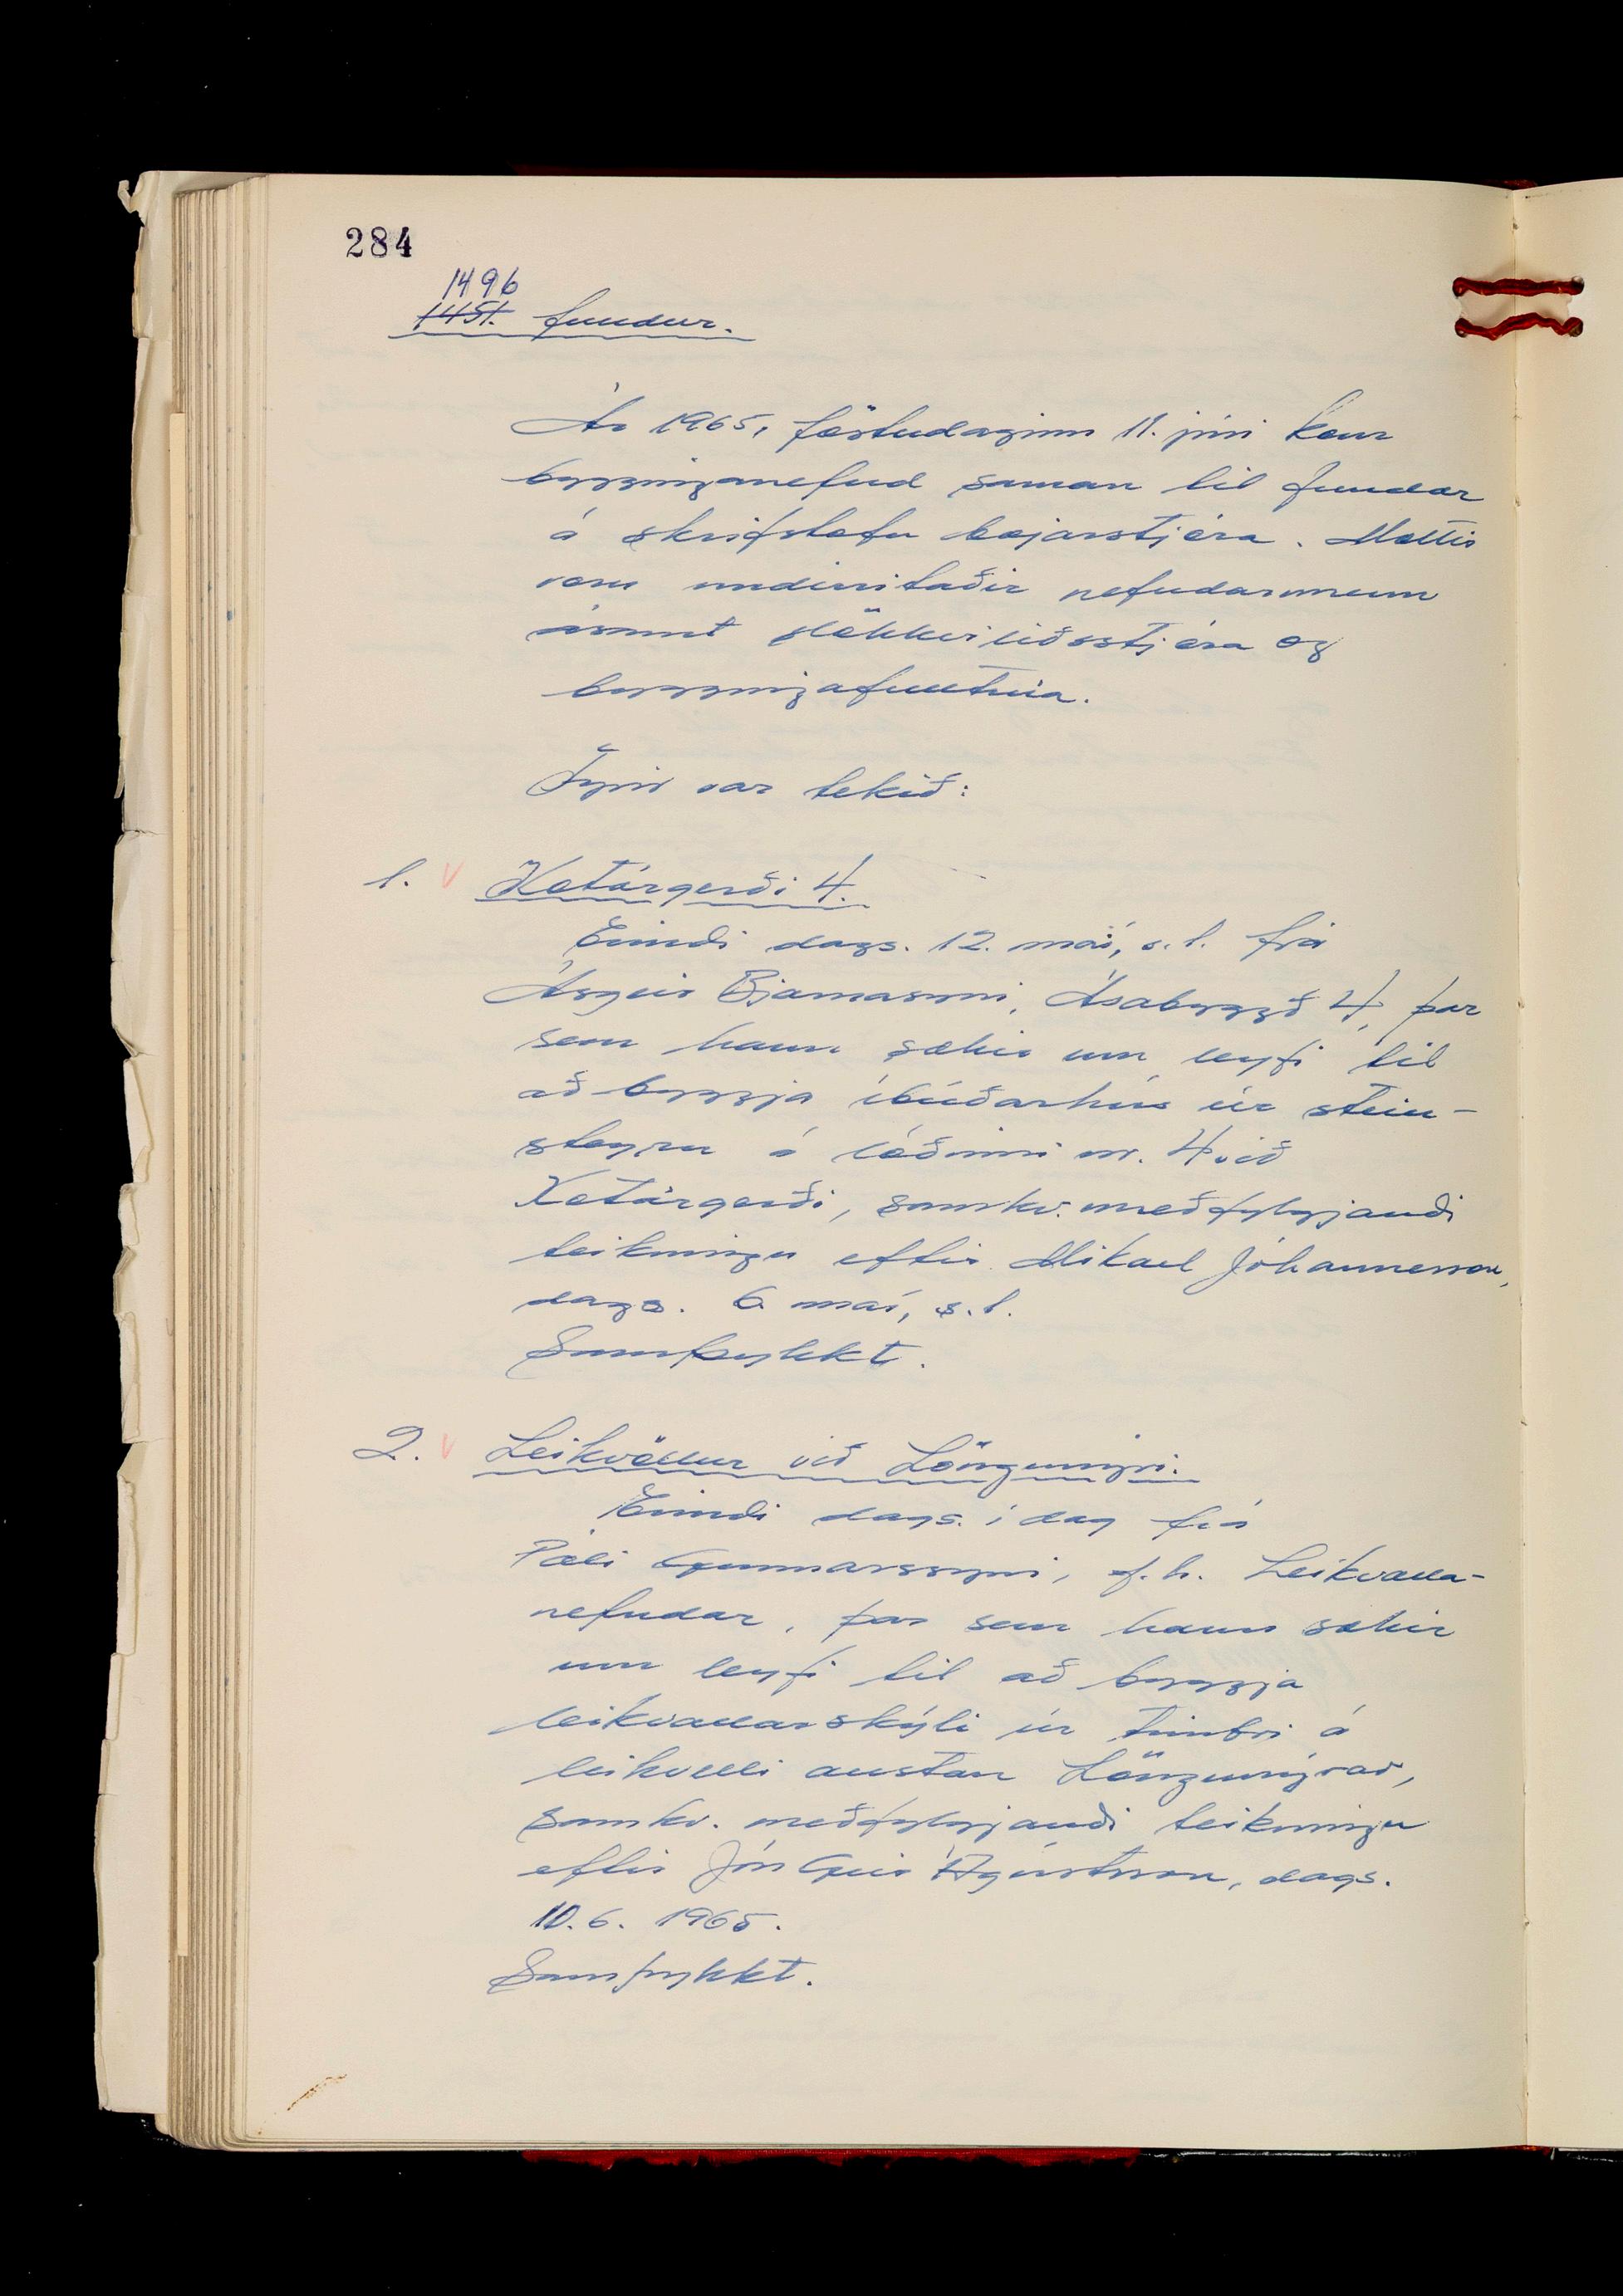 284
1496
1451. fundur.
Ár 1965, föstudaginn 11. júní kom
bygginganefnd saman til fundar
á skrifstofu bæjarstjóra. Mættir
voru undirritaðir nefndarmenn
ásamt slökkviliðsstjóra og
byggingafulltrúa.
Fyrir var tekið:
1. V Kotárgerði 4.
Erindi dags. 12. maí, s.l. frá
Ásgeir Bjarnasyni, Ásabyggð 4, þar
sem hann sækir um leyfi til
að byggja íbúðarhús úr stein-
steypu á lóðinni nr. 4 við
Kotárgerði, samkv. meðfylgjandi
teikningu eftir Mikael Jóhannesson,
dags. 6. maí, s.l.
Samþykkt.
2. V Leikvöllur við Löngumýri.
Erindi dags. í dag frá
Páli Gunnarssyni, f.h. Leikvalla-
nefndar, þar sem hann sækir
um leyfi til að byggja
leikvallarskýli úr timbri á
leikvelli austan Löngumýrar,
samkv. meðfylgjandi teikningu
eftir Jón Geir Ágústsson, dags.
10. 6. 1965.
Samþykkt.